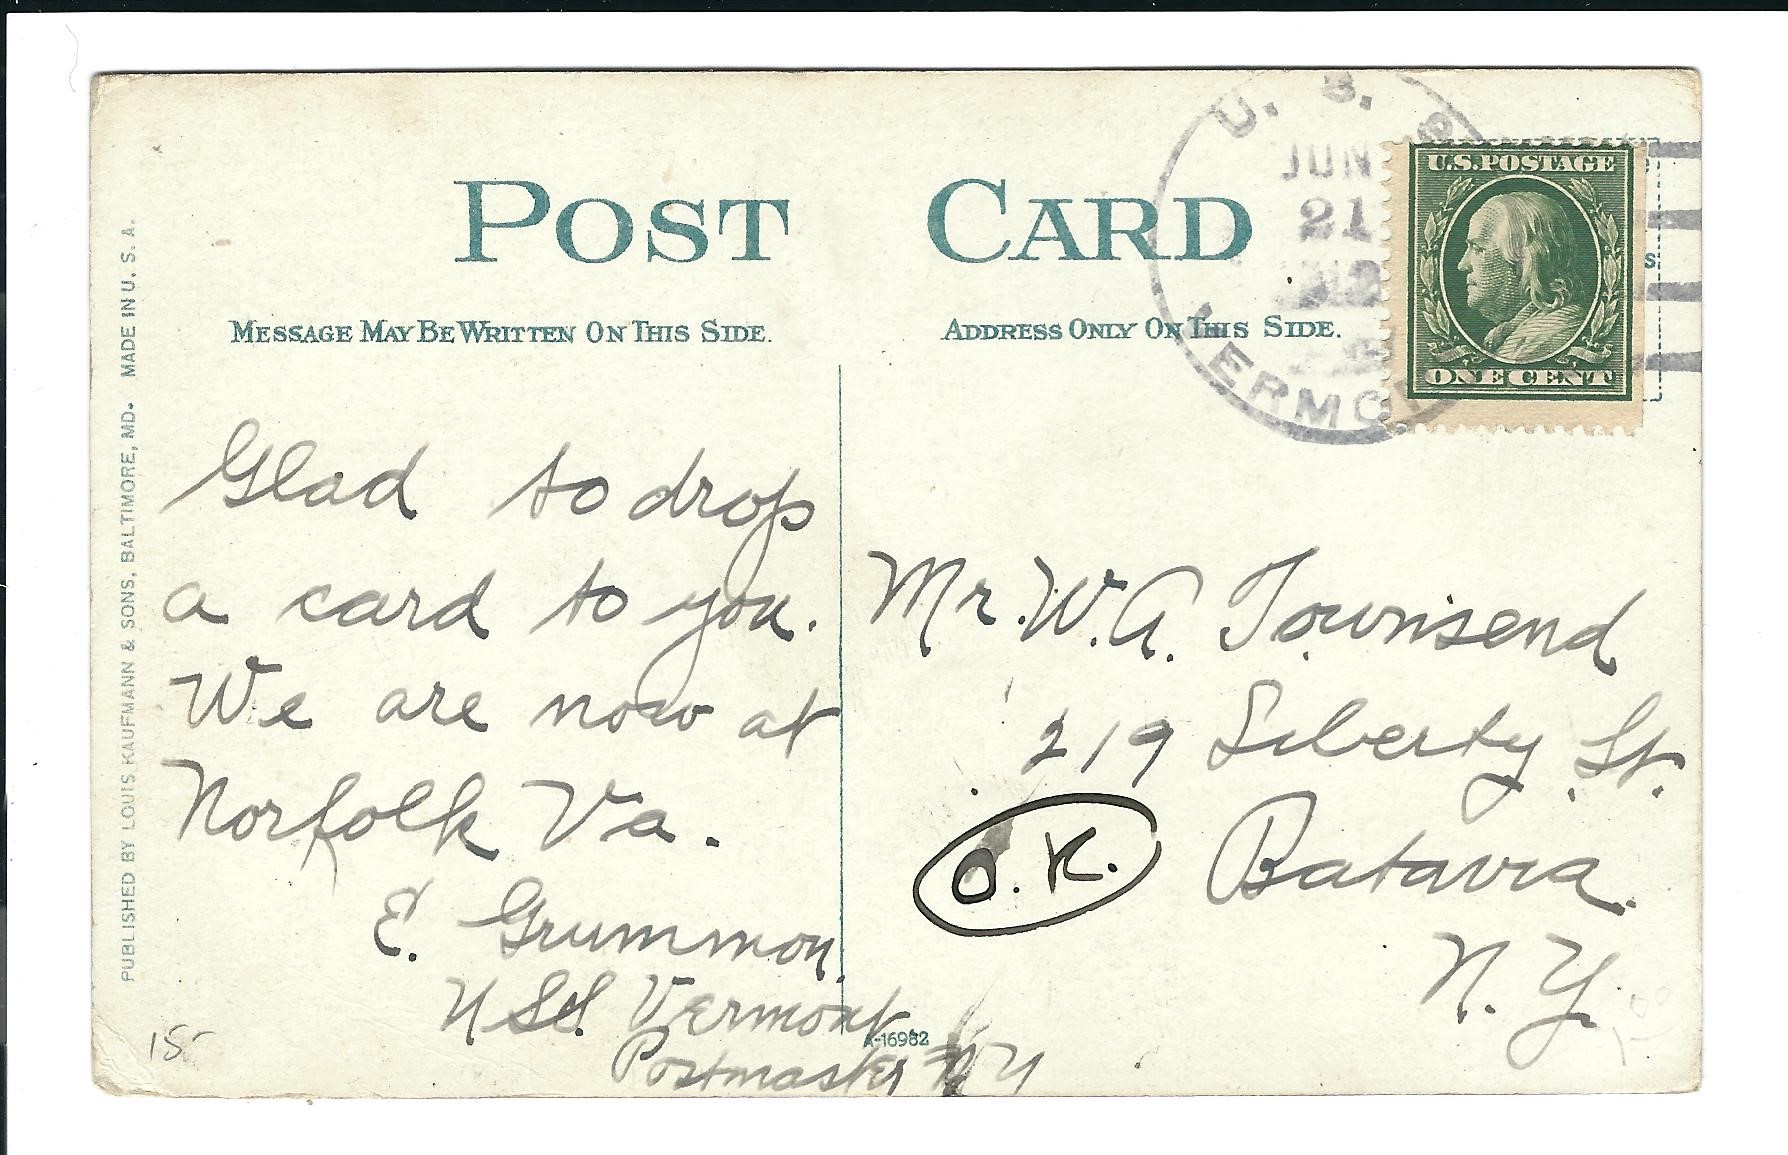 POST CARD
MESSAGE MAY BE WRITTEN ON THIS SIDE.
ADDRESS ONLY ON THIS SIDE.
PUBLISHED BY LOUIS KAUFMANN & SONS, BALTIMORE, MD. MADE IN U. S. A.
U. S.
JUN
21
ERMO
U.S. POSTAGE
ONE CENT
S
Glad to drop
a card to you.
We are now at
Norfolk Va.
E. Grummon.
U S S. Vermont.
Postmaster N Y
Mr. W. A. Townsend
219 Liberty St.
Batavia.
N. Y.
O. K.
A-16982
15